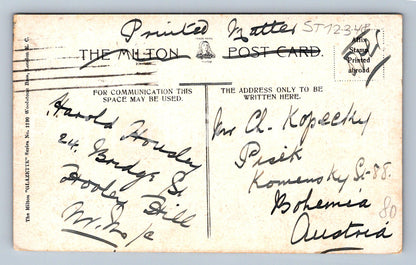 Printed Matter ST1234E
THE MILTON POST CARD.
Affix
Stamp
Printed
abroad
FOR COMMUNICATION THIS
SPACE MAY BE USED.
THE ADDRESS ONLY TO BE
WRITTEN HERE.
The Milton "GLAZETTE" Series No. Woodstock London
Harold Housley
24. Bridge St
Hooley Hill
Mr. Ch. Kopecky
Pisek
Komensky St. 88.
Bohemia
Austria
80